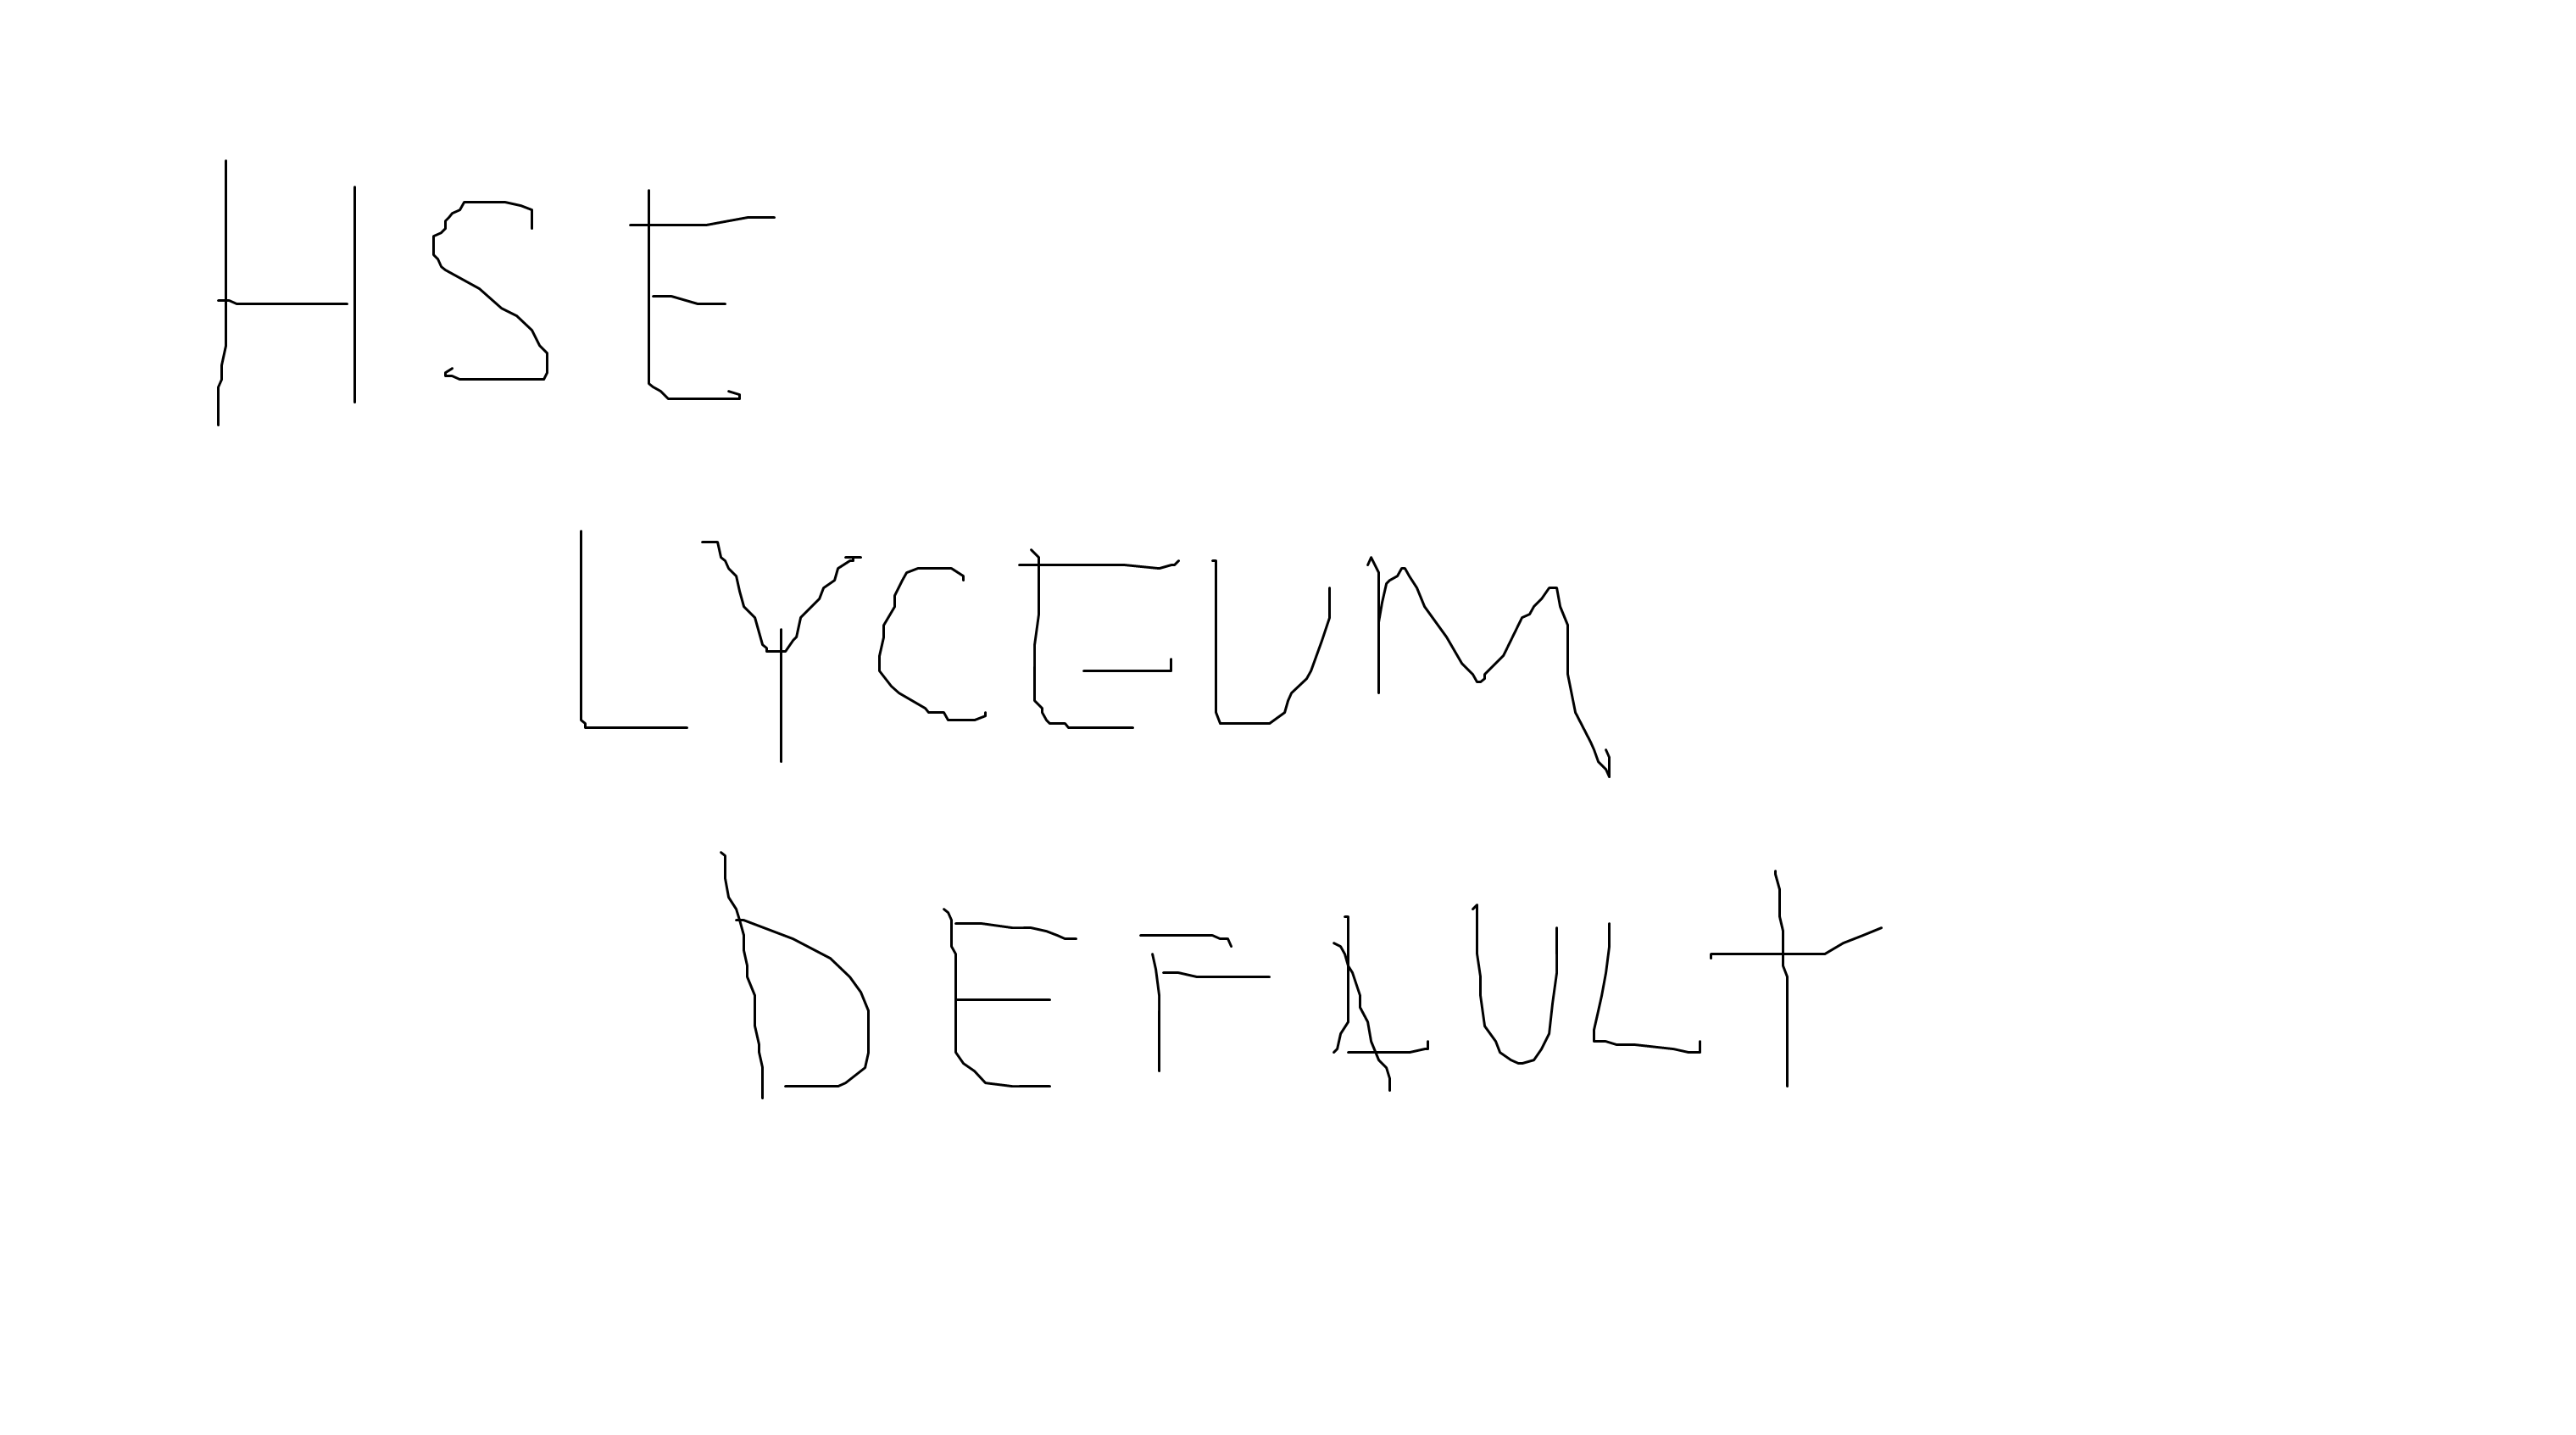 HSE
LYCEUM
DEFAULT